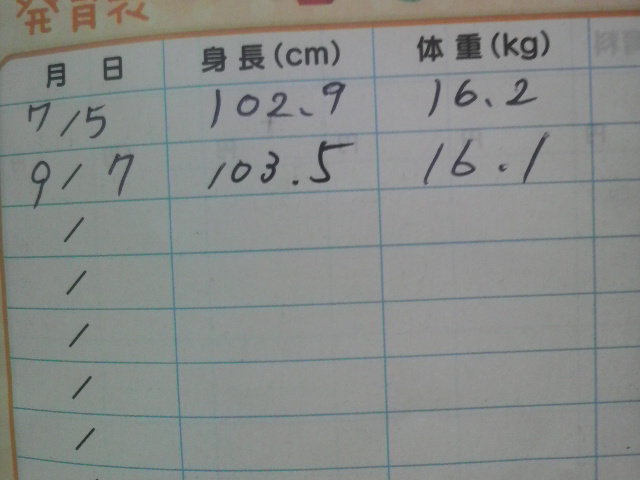 発育表
月 日 身長(cm) 体重(kg)
7/5 102.9 16.2
9/7 103.5 16.1
/
/
/
/
/